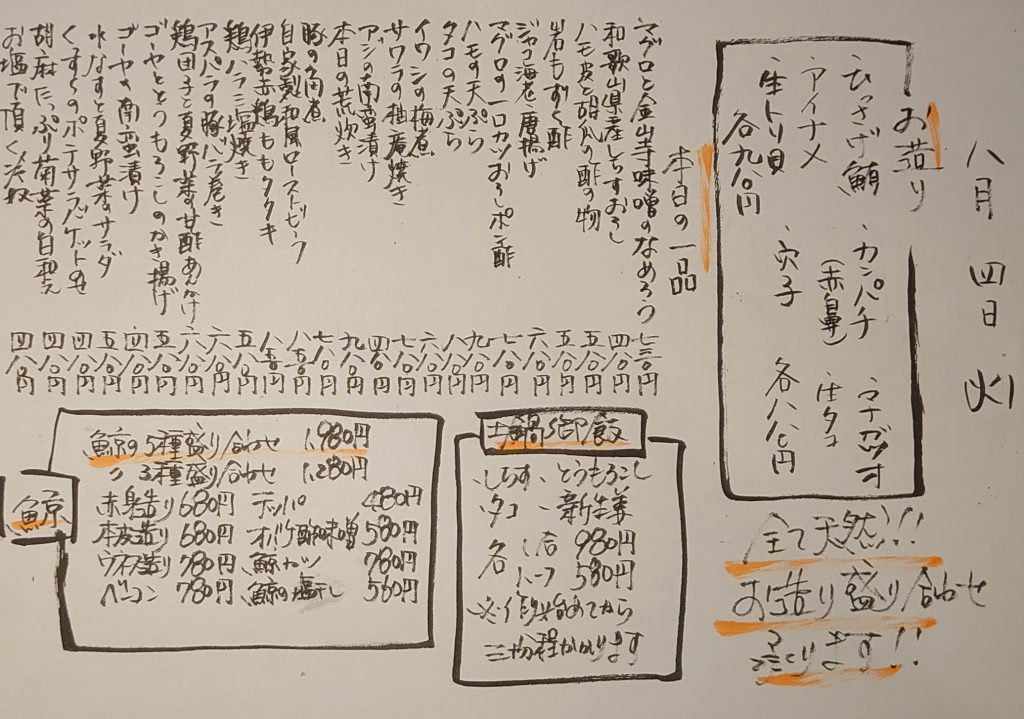 八月 四日 火
お造り
ひっさげ鮪 カンパチ(赤鼻) ウチワハギ
アイナメ 生タコ
生トリ貝 穴子
各九八〇円 各八八〇円
全て天然!!
お造り盛り合わせ
造ります!!
本日の一品
マグロと金山寺味噌のなめろう 七三〇円
和歌山県産しらすおろし 四八〇円
ハモ皮と胡瓜の酢の物 五八〇円
岩もずく酢 五八〇円
ジャコ海老唐揚げ 六八〇円
マグロの一口カツおろしポン酢 七八〇円
ハモの天ぷら 九八〇円
タコの天ぷら 八八〇円
イワシの梅煮 六八〇円
サワラの柚庵焼き 七八〇円
アジの南蛮漬け 四八〇円
本日の荒炊き 九八〇円
豚の角煮 七八〇円
自家製和風ローストビーフ 八五〇円
伊勢赤鶏ももタタキ 八五〇円
鶏ハラミ塩焼き 五八〇円
アスパラの豚バラ巻き 六八〇円
鶏団子と夏野菜の甘酢あんかけ 六八〇円
ゴーヤととうもろこしのかき揚げ 五八〇円
ゴーヤの南蛮漬け 四八〇円
水なすと夏野菜のサラダ 五八〇円
くずしのポテサラバケットのせ 四八〇円
胡麻たっぷり菊菜の白和え 四八〇円
お塩で頂く冷奴 四八〇円
土鍋御飯
しらす、とうもろこし
タコ、新生姜
各 一合 980円
ハーフ 580円
炊き始めてから
三十分程かかります
鯨
鯨の5種盛り合わせ 1,980円
〃 3種盛り合わせ 1,280円
赤身造り 680円 テッパ 480円
本皮造り 680円 オバケ酢味噌 580円
ウネ造り 780円 鯨カツ 780円
ベーコン 780円 鯨の塩干し 560円